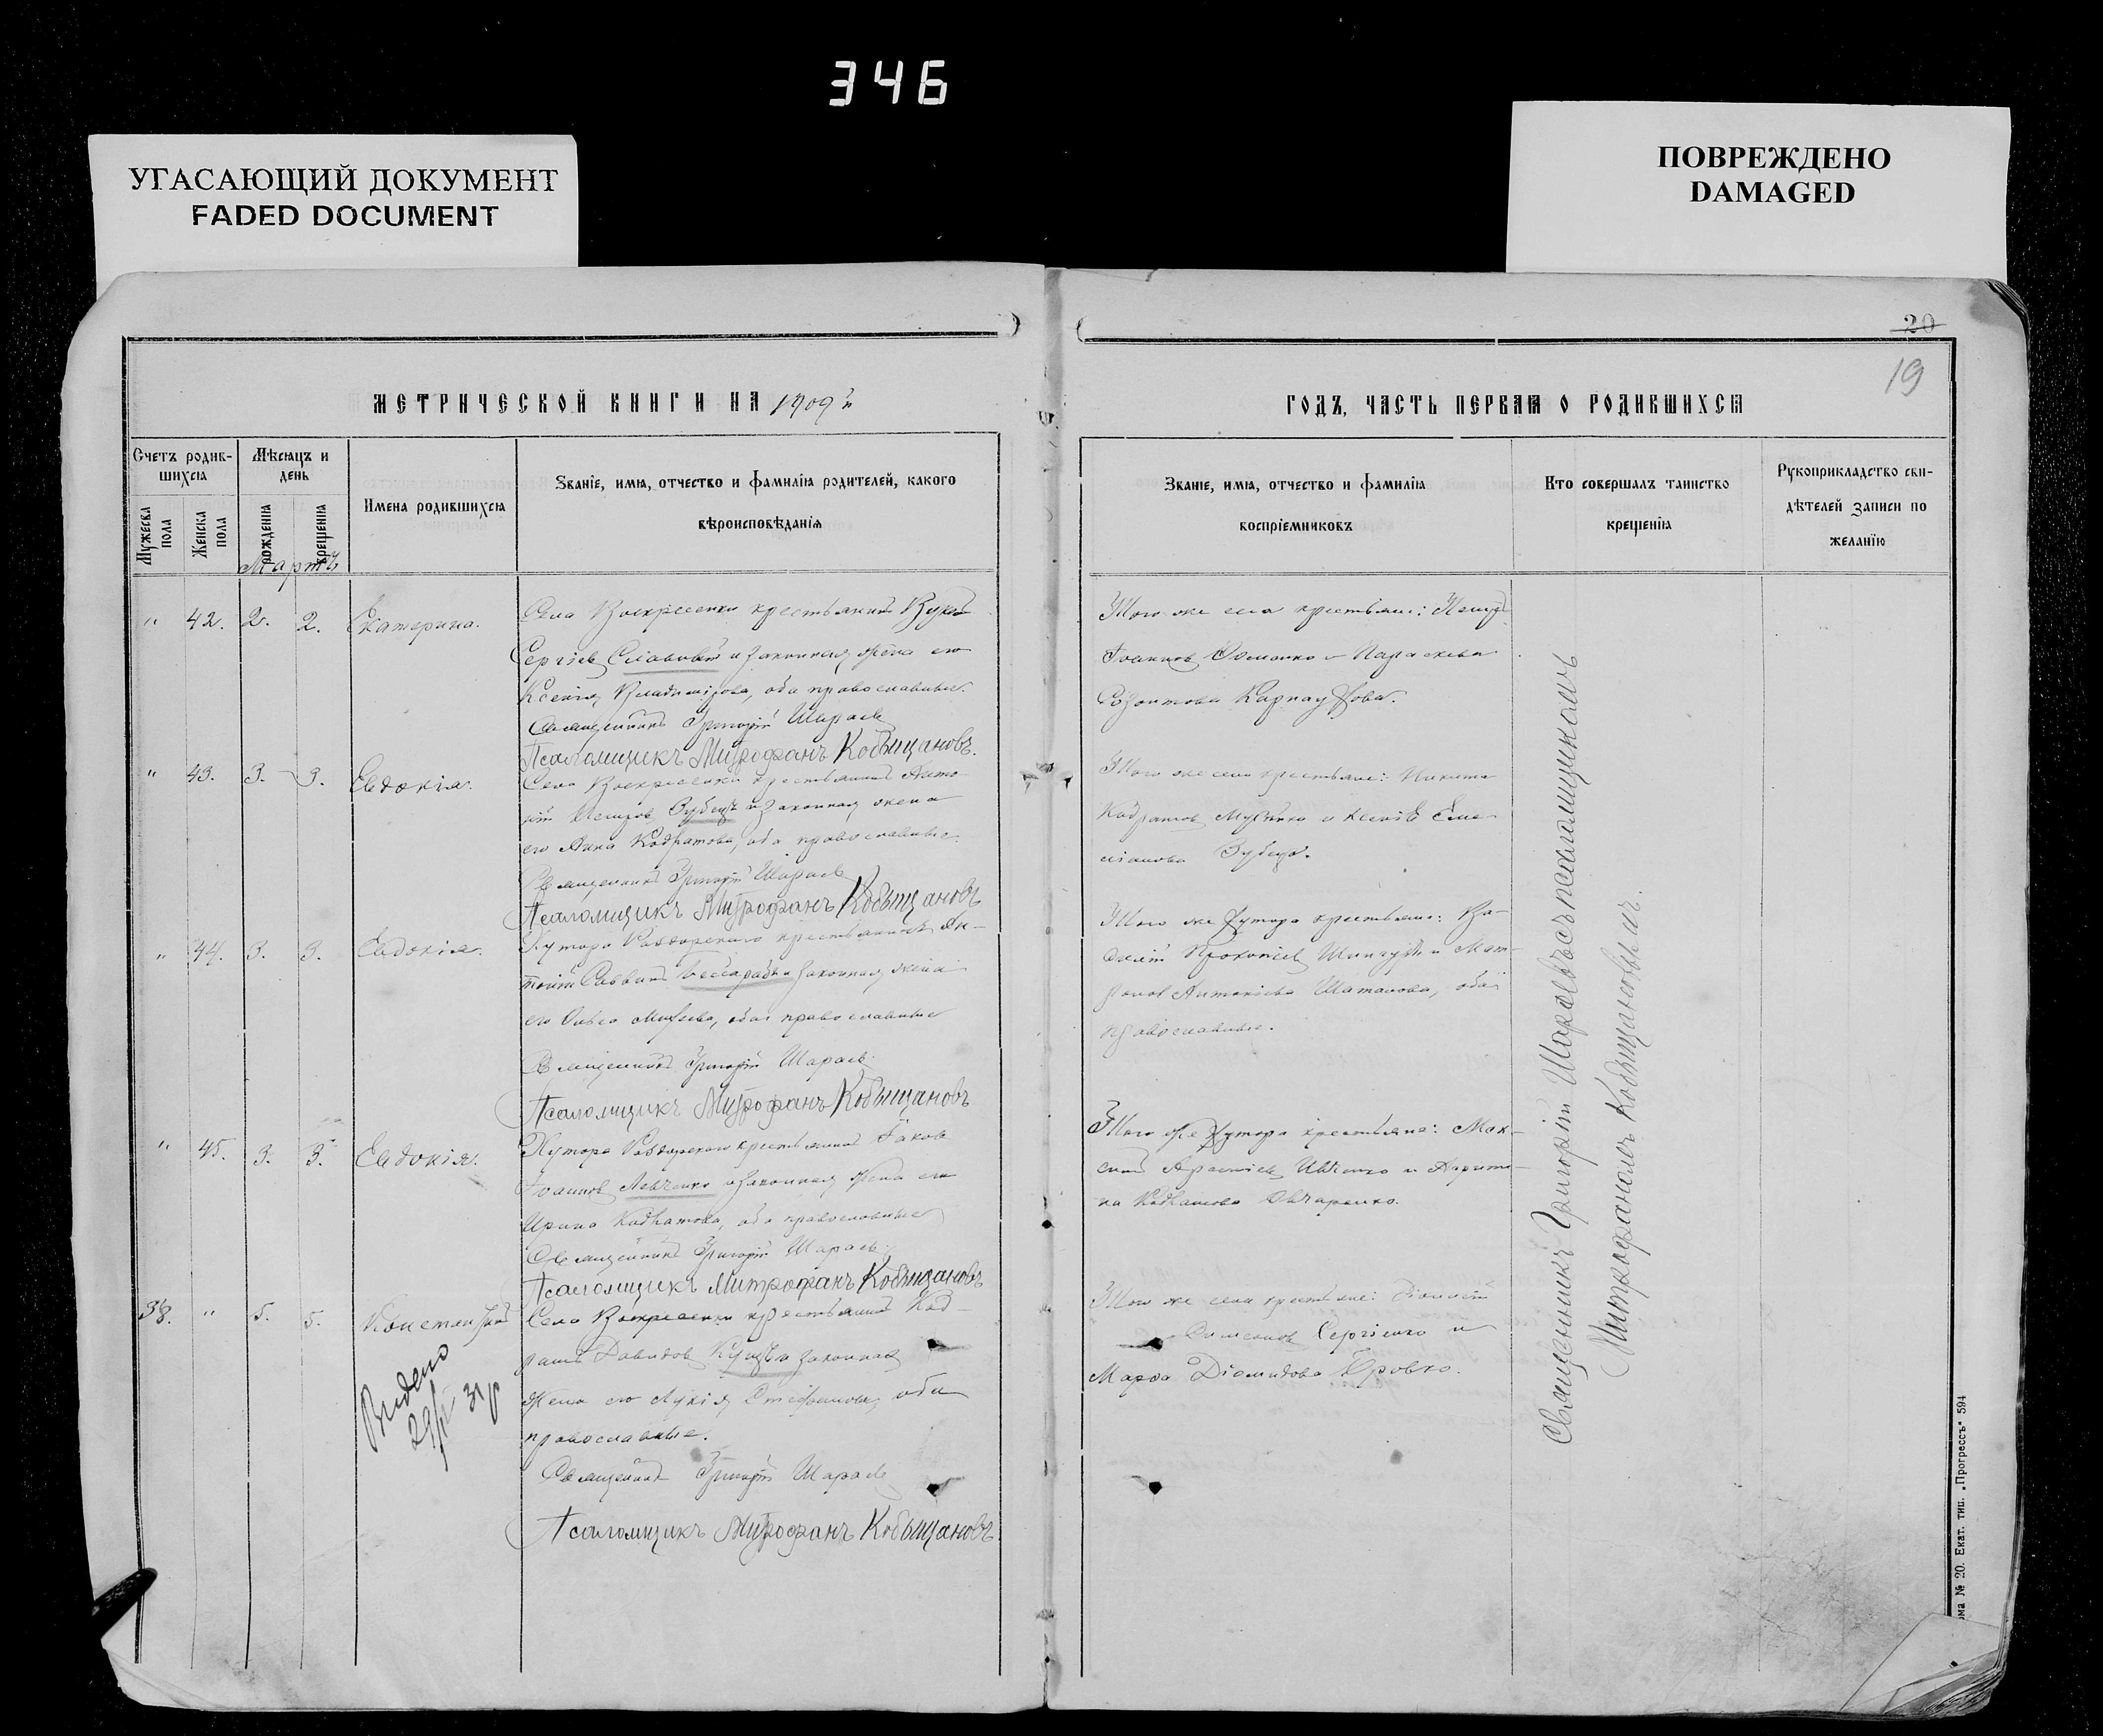 346
УГАСАЮЩИЙ ДОКУМЕНТ
FADED DOCUMENT
ПОВРЕЖДЕНО
DAMAGED
20
19
МЕТРИЧЕСКОЙ КНИГИ НА 1909 й
ГОДЪ, ЧАСТЬ ПЕРВАЯ О РОДИВШИХСЯ
Счетъ родив-
шихся
Мужеска пола
Женска пола
Мѣсяцъ и
день
рожденія
крещенія
Мартъ
Имена родившихся
Званіе, имя, отчество и фамилія родителей, какого
вѣроисповѣданія
Званіе, имя, отчество и фамилія
воспріемниковъ
Кто совершалъ таинство
крещенія
Рукоприкладство сви-
дѣтелей записи по
желанію
" 42. 2. 2. Екатерина.
Села Воскресенки крестьянинъ
Сергіевъ и законная жена его
Ксенія Владимірова, оба православные.
Священникъ Григорій Шараевъ
Псаломщикъ Митрофанъ Кобыщановъ.
Того же села крестьяне:
Іоанновъ и Параскева
" 43. 3. 3. Евдокія.
Села Воскресенки крестьянинъ Анто-
ній Зубецъ и законная жена
его Анна Кодратова, оба православные.
Священникъ Григорій Шараевъ
Псаломщикъ Митрофанъ Кобыщановъ
Того же села крестьяне: Никита
Кодратовъ и Ксенія Еме-
ліанова Зубецъ.
" 44. 3. 3. Евдокія.
Хутора крестьянинъ Ан-
тоній Саввинъ Бессарабъ и законная жена
его Ольга оба православные
Священникъ Григорій Шараевъ.
Псаломщикъ Митрофанъ Кобыщановъ
Того же хутора крестьяне: Ва-
силій Прокопіевъ и Мат-
рона Антоніева Шаталова, оба
православные.
" 45. 3. 3. Евдокія.
Хутора крестьянинъ Іаковъ
Іоанновъ Левченко и законная жена его
Ирина Кодратова, оба православные
Священникъ Григорій Шараевъ.
Псаломщикъ Митрофанъ Кобыщановъ
Того же хутора крестьяне: Мак-
симъ Ивченко и Харити-
на Овчаренко.
38. " 5. 5. Константинъ
Видано
Села Воскресенки крестьянинъ Код-
ратъ Давидовъ и законная
жена его Лукія Стефанова, оба
православные.
Священникъ Григорій Шараевъ
Псаломщикъ Митрофанъ Кобыщановъ.
Того же села крестьяне: Діонисій
Симеоновъ Сергіенко и
Марѳа Діомидова
Священникъ Григорій Шараевъ съ псаломщикомъ
Митрофаномъ Кобыщановымъ.
ма № 20. Екат. тип. „Прогрессъ“ 594